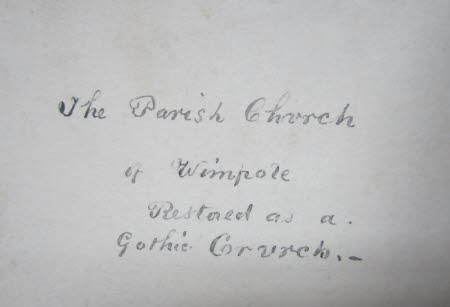 The Parish Church
of Wimpole
Restored as a.
Gothic Church.-